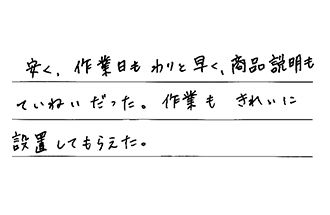 安く、作業日もわりと早く、商品説明も
ていねいだった。作業も きれいに
設置してもらえた。